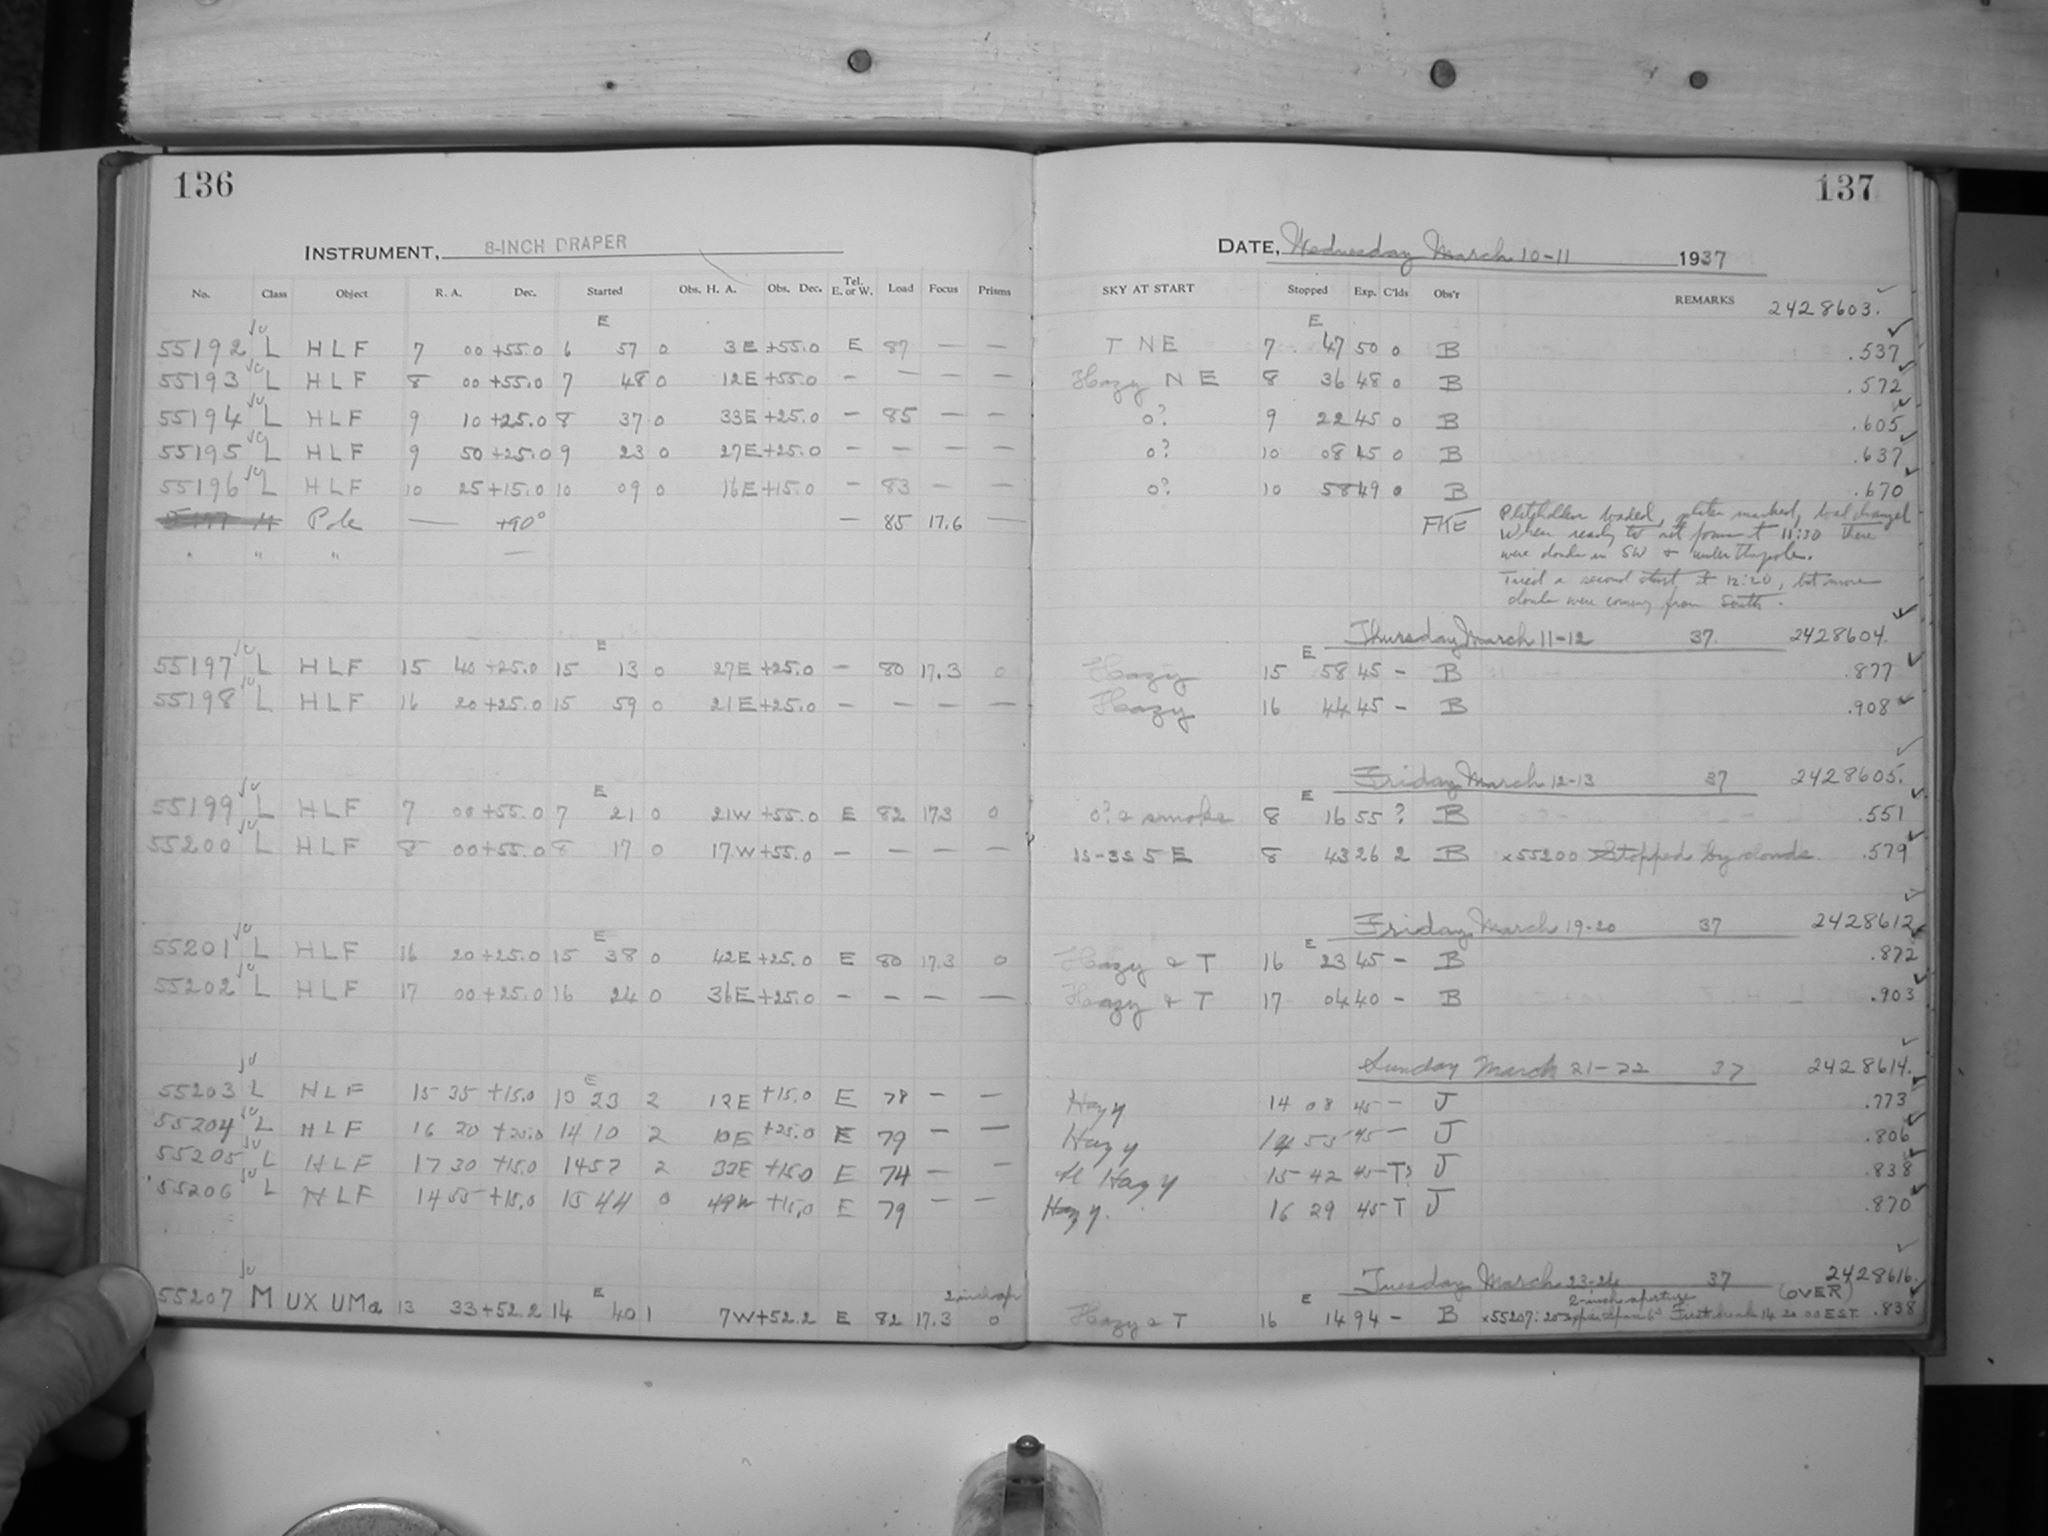 136
INSTRUMENT, 8-INCH DRAPER
No. Class Object R. A. Dec. Started Obs. H. A. Obs. Dec. Tel. E. or W. Load Focus Prisms
E
55192 L HLF 7 00 +55.0 6 57 0 3E +55.0 E 87 — —
55193 L HLF 8 00 +55.0 7 48 0 12E +55.0 - — — —
55194 L HLF 9 10 +25.0 8 37 0 33E +25.0 — 85 — —
55195 L HLF 9 50 +25.0 9 23 0 27E +25.0 — — — —
55196 L HLF 10 25 +15.0 10 09 0 16E +15.0 — 83 — —
Pole — +90° — 85 17.6 —
" " " —
E
55197 L HLF 15 40 +25.0 15 13 0 27E +25.0 — 80 17.3 0
55198 L HLF 16 20 +25.0 15 59 0 21E +25.0 — — — —
E
55199 L HLF 7 00 +55.0 7 21 0 21W +55.0 E 82 17.3 0
55200 L HLF 8 00 +55.0 8 17 0 17W +55.0 — — — —
E
55201 L HLF 16 20 +25.0 15 38 0 42E +25.0 E 80 17.3 0
55202 L HLF 17 00 +25.0 16 24 0 36E +25.0 — — — —
E
55203 L HLF 15 35 +15.0 13 23 2 12E +15.0 E 78 — —
55204 L HLF 16 20 +25.0 14 10 2 10E +25.0 E 79 — —
55205 L HLF 17 30 +15.0 14 57 2 33E +15.0 E 74 — —
55206 L HLF 14 55 +15.0 15 44 0 49W +15.0 E 79 — —
E
55207 M UX UMa 13 33 +52.2 14 40 1 7W +52.2 E 82 17.3 0
137
DATE, Wednesday March 10-11 1937
SKY AT START Stopped Exp. C'lds Obs'r REMARKS 2428603.
E
T NE 7 47 50 0 B .537
Hazy NE 8 36 48 0 B .572
0? 9 22 45 0 B .605
0? 10 08 45 0 B .637
0? 10 58 49 0 B .670
FKE Plateholder loaded, plates marked, load changed
When ready to set focus at 11:30 there
were clouds in SW & under the pole.
Tried a second start at 12:20, but more
clouds were coming from South.
Thursday March 11-12 37. 2428604.
E
Hazy 15 58 45 - B .877
Hazy 16 44 45 - B .908
Friday March 12-13 37 2428605.
E
0? & smoke 8 16 55 ? B .551
1S-3S 5 E 8 43 26 2 B x55200 Stopped by clouds. .579
Friday March 19-20 37 2428612
E
Hazy & T 16 23 45 - B .872
Hazy & T 17 04 40 - B .903
Sunday March 21-22 37 2428614.
Hazy 14 08 45 — J .773
Hazy 14 55 45 — J .806
Hazy 15 42 45 - T? J .838
Hazy. 16 29 45 T J .870
Tuesday March 23-24 37 2428616.
E 2-inch aperture (OVER)
Hazy & T 16 14 94 - B x55207: First break 14 20 00 EST. .838